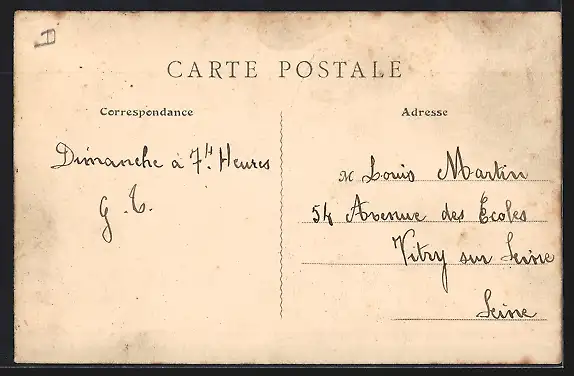 CARTE POSTALE
Correspondance
Adresse
Dimanche à 7H Heures
G. T.
M Louis Martin
54 Avenue des Écoles
Vitry sur Seine
Seine